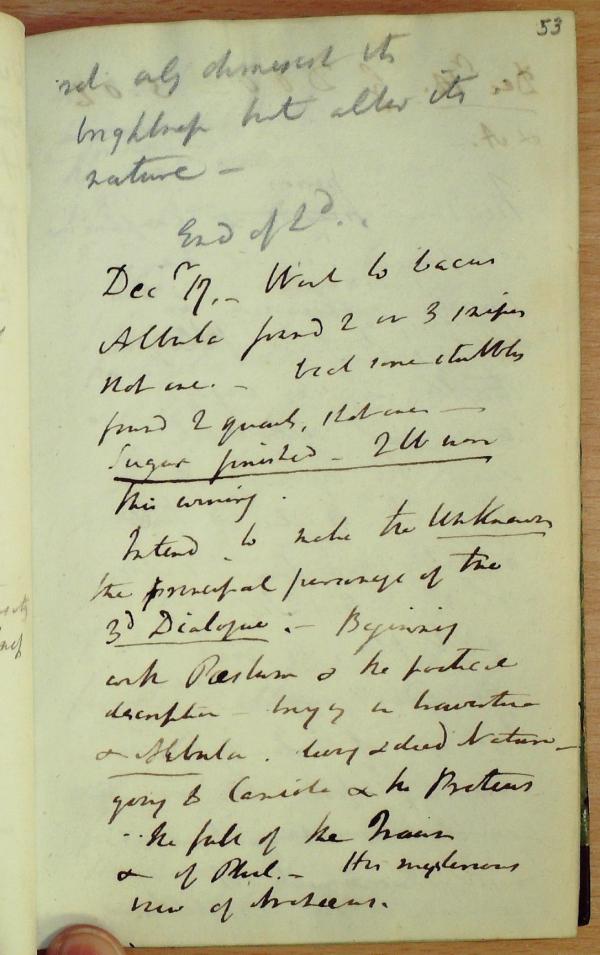 53
not only diminish its
brightness but alter its
nature –
End of 2d.
Decr 17. – Went to Lacus
Albula found 2 or 3 snipes
shot one. – beat some stubbles
found 2 quails, shot one –
Sugar finished – 2 lb
this evening.
Intend to make the Unknown
the principal personage of the
3d Dialogue :– Beginning
with Paestum & the poetical
description – bringing in travertine
& Albula. living & dead Nature –
going to Carniola & the Proteus
the fall of the Traun
& of Phil. – His mysterious
view of